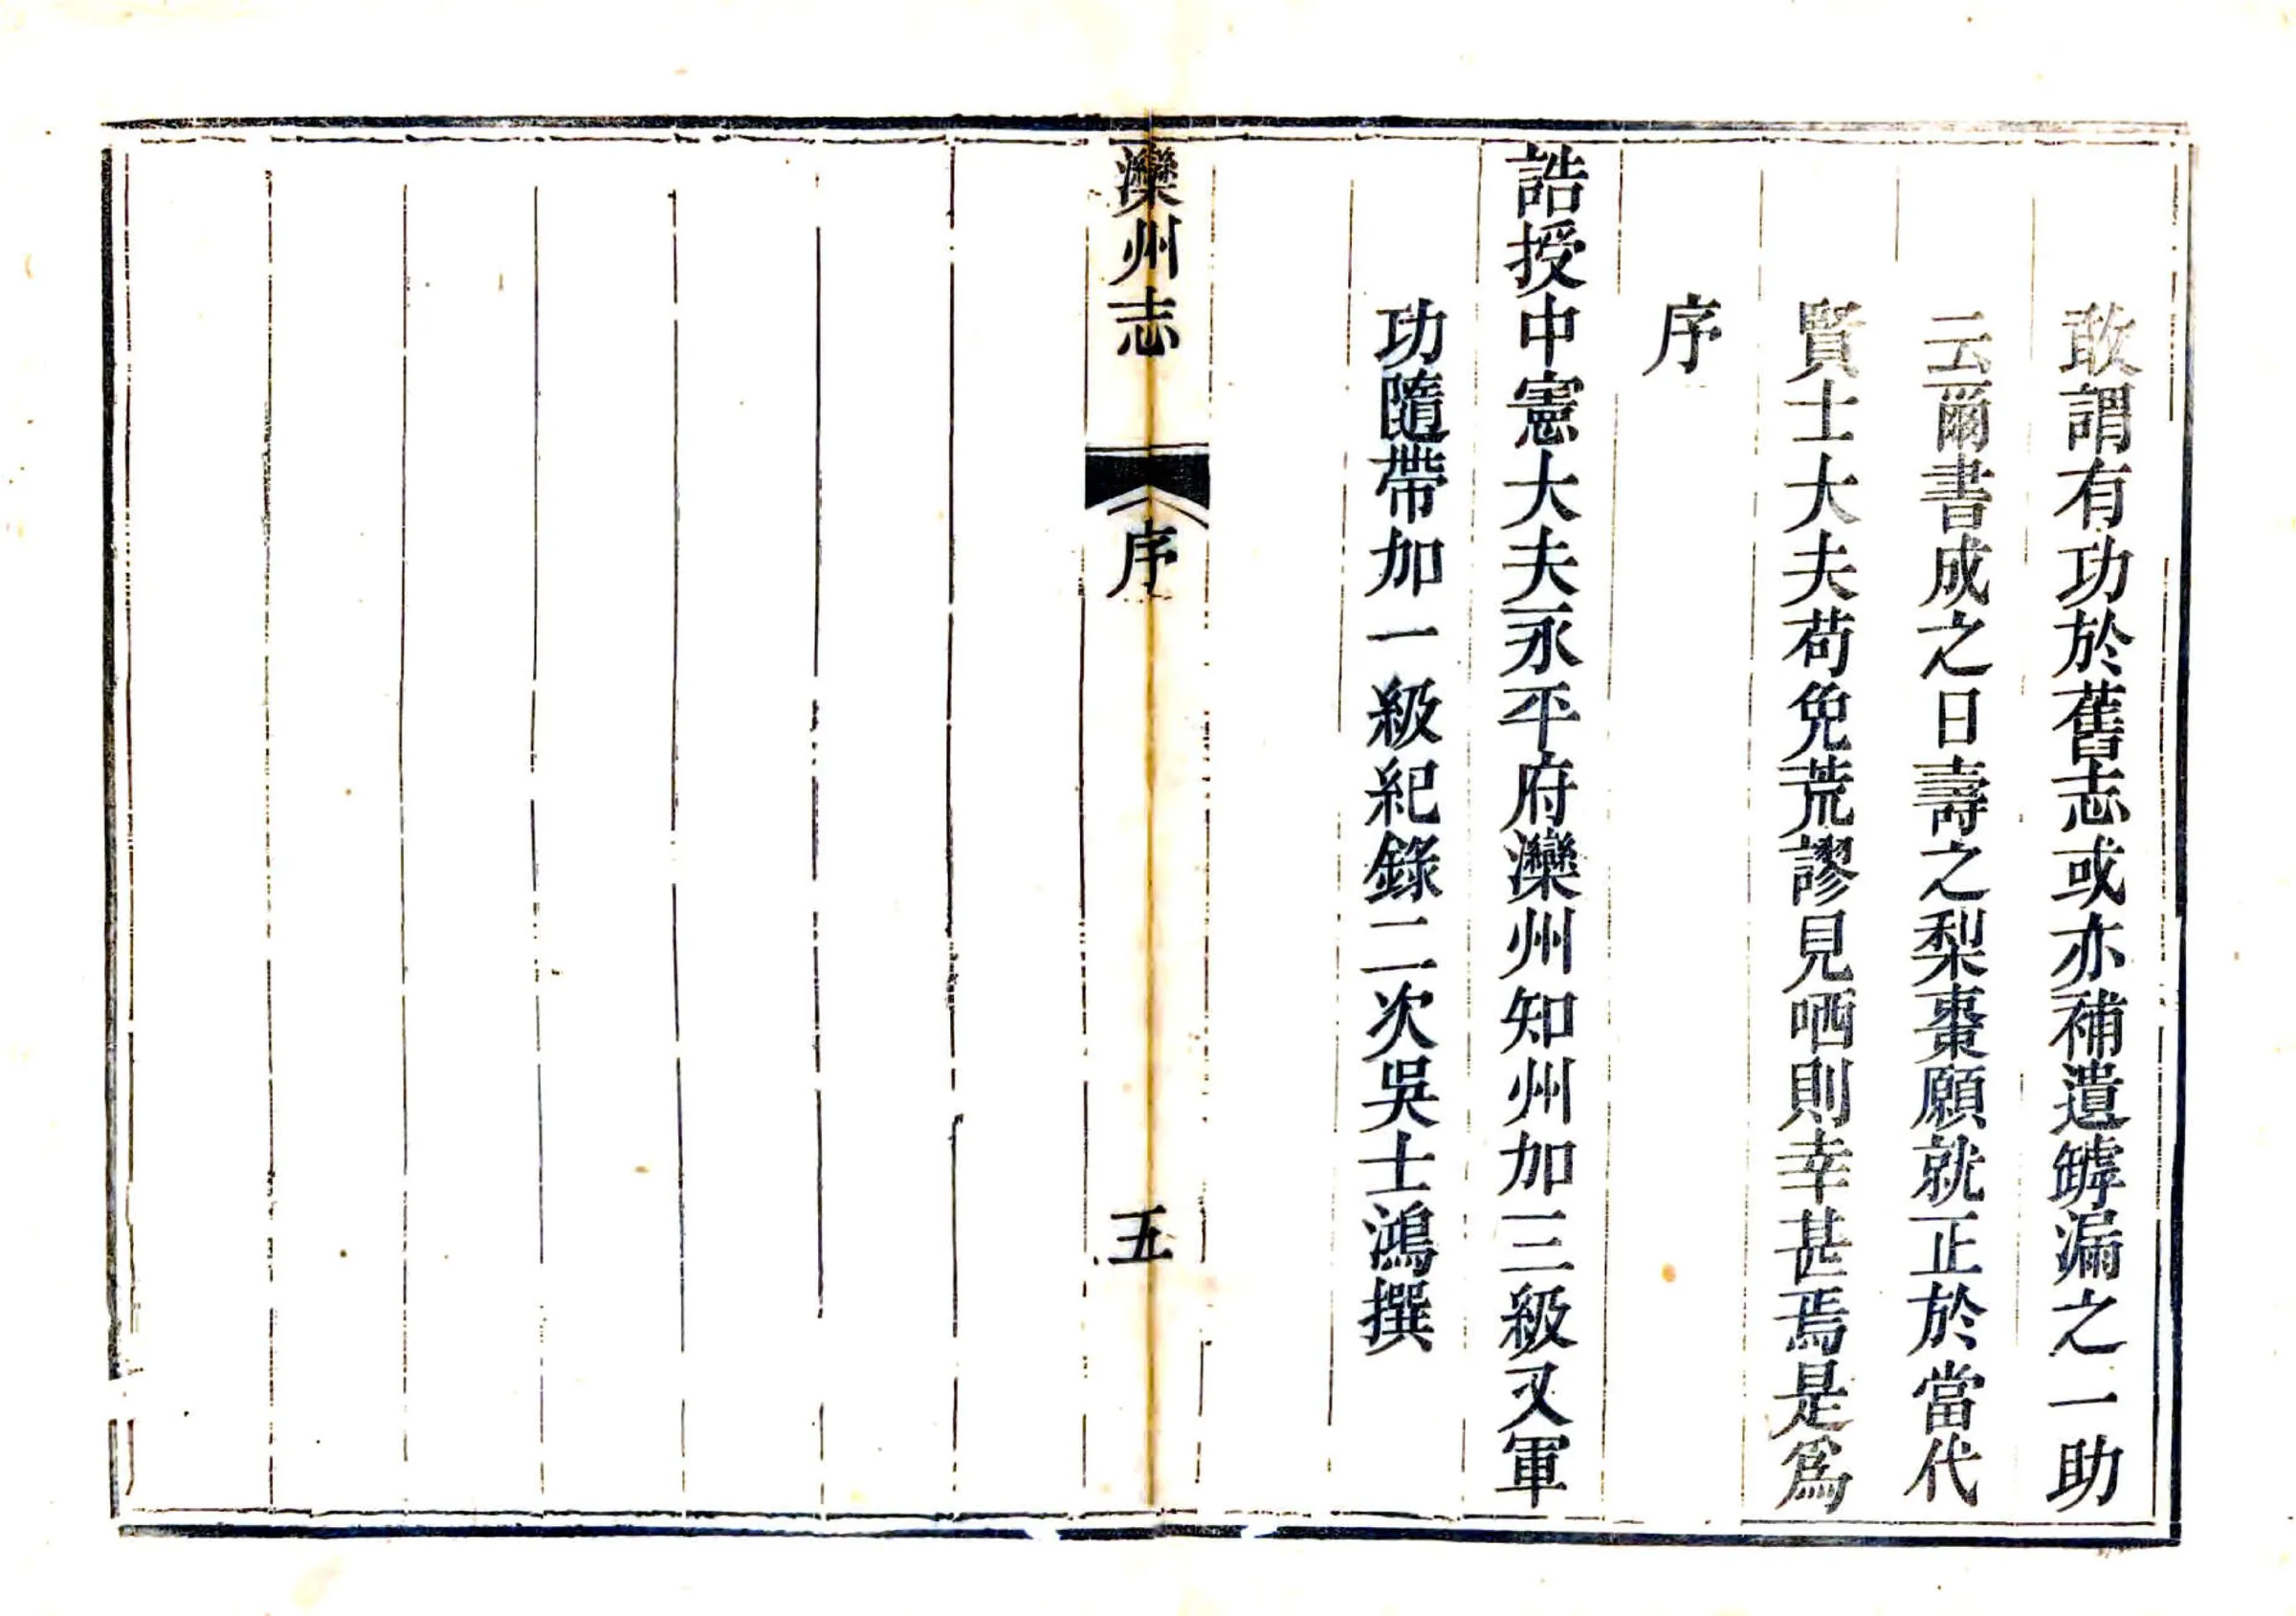 敢謂有功於舊志或亦補遺罅漏之一助
云爾書成之日壽之梨棗願就正於當代
賢士大夫苟免荒謬見哂則幸甚焉是爲
序
誥授中憲大夫永平府灤州知州加三級又軍
功隨帶加一級紀錄二次吳士鴻撰
灤州志
序
五